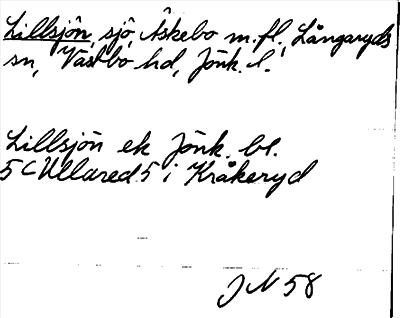 Lillsjön, sjö, Åskebo m.fl., Långaryds
sn, Västbo hd, Jönk. l.
Lillsjön ek Jönk. bl.
5 C Ullared 5 i Kråkeryd
JN 58